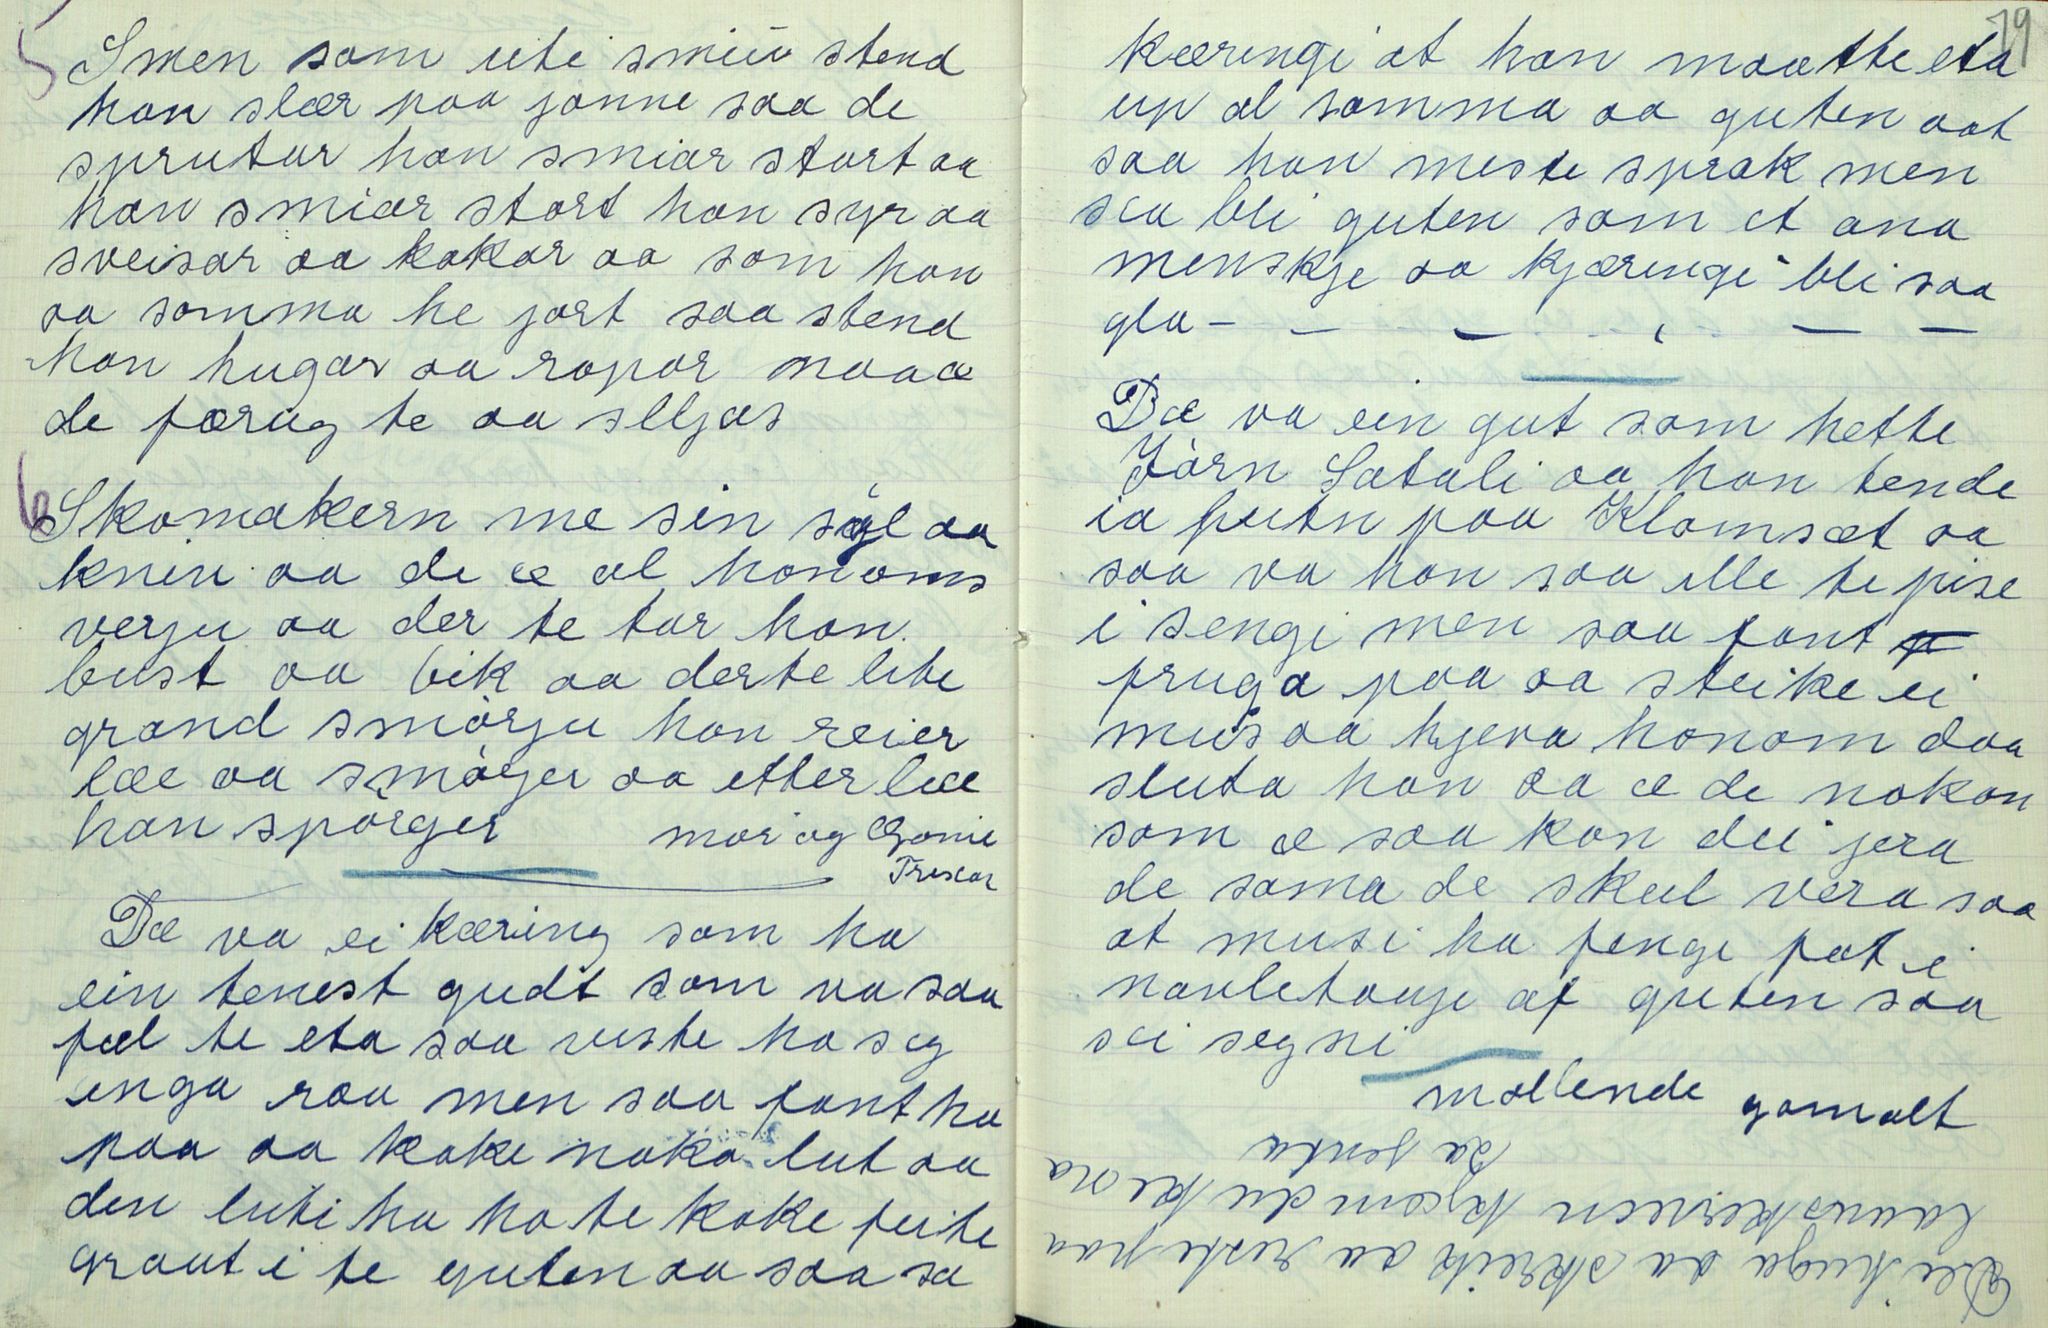 5 Smen som uti smiu stend
han slær paa jønne saa de
sprutar han smiar stort aa
han smiar stort han syr aa
sveisar aa kakar aa som han
aa somma he jort saa stend
han hugar aa ropar naaa æ
de færug te aa selljas
6 Skomakern me sin syl aa
kniv aa de æ al honoms
verju aa der te tar han
bust aa bik aa derte lite
grand smørju han reier
læe aa smørjer aa etter læe
han spørger mor og Gamle
Trexar
Dæ va ei kæring som ha
ein tenest gudt som va saa
fæl te eta saa viste ha seg
inga raa men saa fant ha
paa aa kake naka lut aa
den luti ha ha te kake feite
graut i te guten aa saa sa
19
kæringi at han maatte eta
up al somma aa guten aat
saa han meste sprak men
sea bli guten som et ana
menskje aa kjæringi bli saa
gla - - - - - - -
Dæ va ein gut som hette
Jørn Satali aa han tende
ia futn paa Klomsæt aa
saa va han saa ille te pise
i sengi men saa fant
fruga paa aa steike ei
mus aa kjeva honom daa
sluta han aa æ de nokon
som æ saa kan dei jera
de sama de skul vera saa
at musi ha fenge fæt i
navletauje af guten saa
sei segni
møllende gamalt
Dei huga aa skreik aa reste paa
laaus kjeven kjæm du kjæna
sa jenta